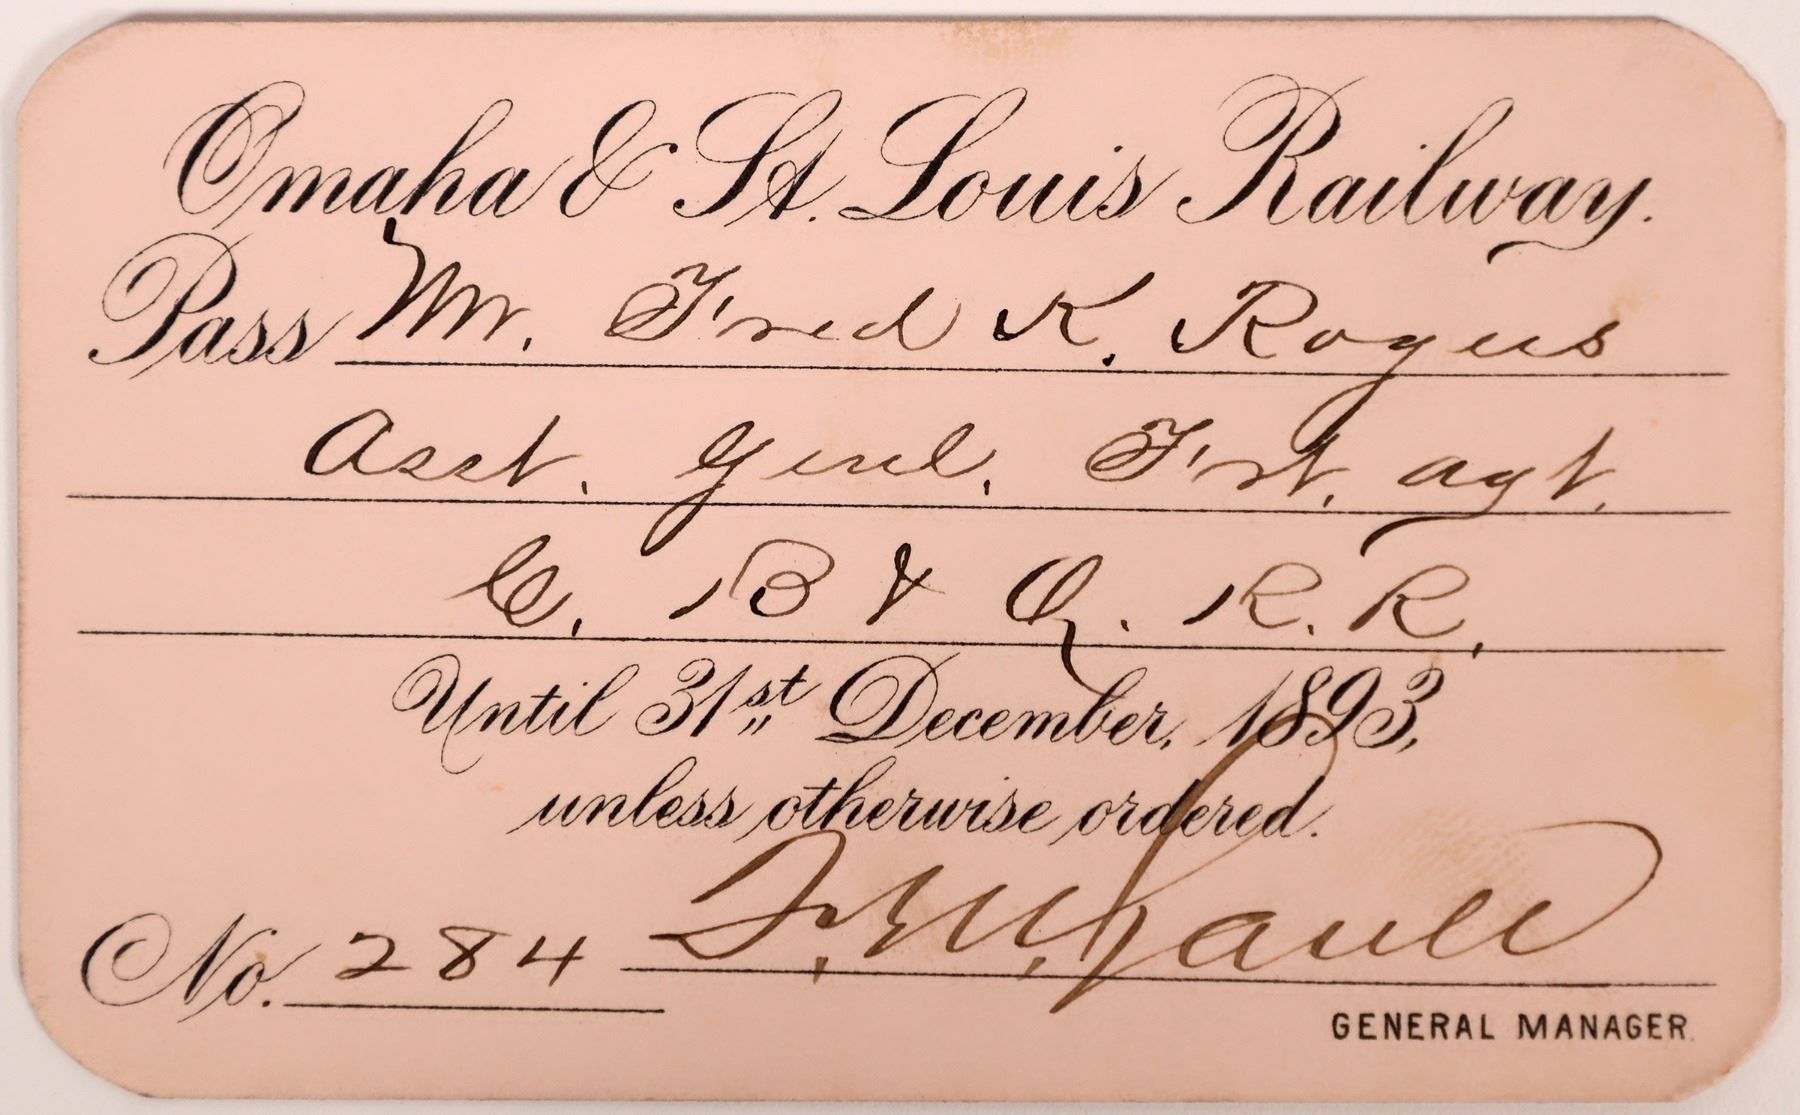 Omaha & St. Louis Railway.
Pass Mr. Fred K. Rogers
Asst. Genl. Frt. Agt.
C. B & Q. R. R.
Until 31st December, 1893,
unless otherwise ordered.
No. 284 F. M. Gault
GENERAL MANAGER.